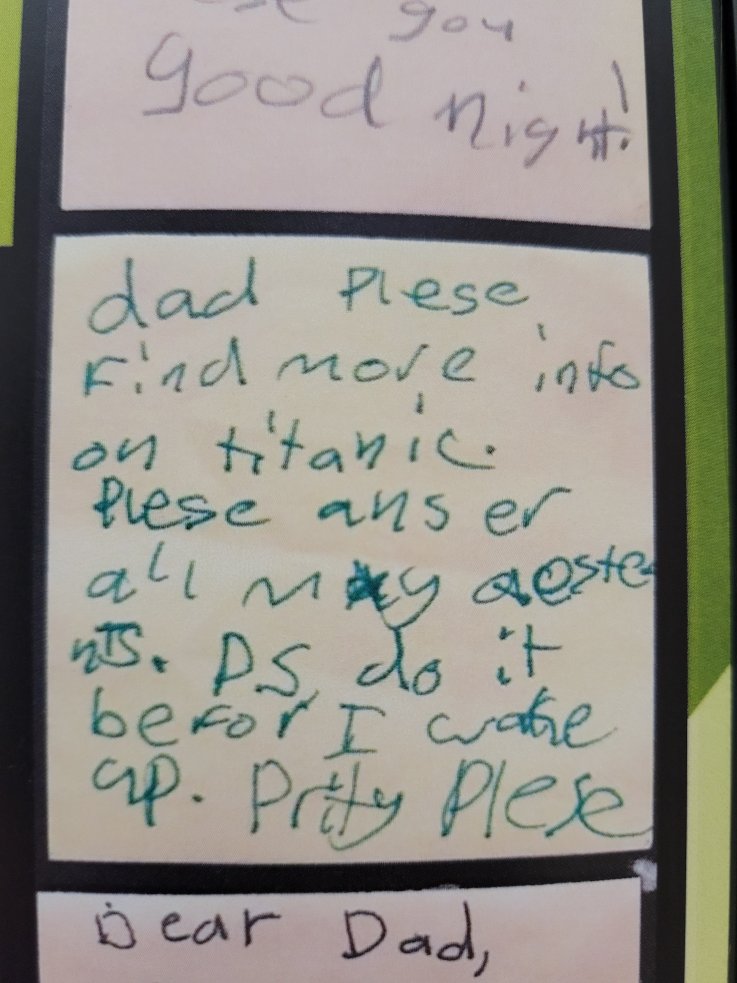 se you
good night!
dad Plese
Find more info
on titanic.
Plese anser
all my qeste
nTS. PS, do it
befor I wake
up. Prity Plese
Dear Dad,